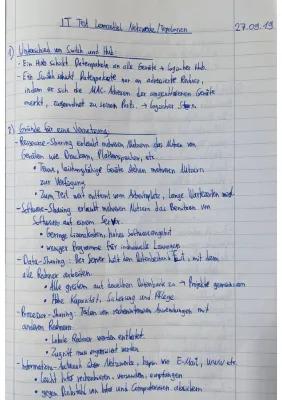 IT Test Lernzettel Netzwerke/Topologien 27.09.19
1) Unterschied von Switch und Hub:
- Ein Hub schickt Datenpakete an alle Geräte → logischer Hub.
- Ein Switch schickt Datenpakete nur an adressierte Rechner,
indem er sich die MAC Adressen der angeschlossenen Geräte
merkt, zugeordnet zu seinen Ports. → logischer Stern.
2) Gründe für eine Vernetzung:
- Ressource-Sharing erlaubt mehreren Nutzern das Nutzen von
Geräten wie Druckern, Plattenspeichern, etc.
• Teure, leistungsfähige Geräte stehen mehreren Nutzern
zur Verfügung
• Zum Teil weit entfernt vom Arbeitsplatz, lange Wartezeiten
- Software-Sharing erlaubt mehreren Nutzern das Benutzen von
Software auf einem Server.
• Geringe Lizenzkosten, hohes Softwareangebot
• weniger Programme für individuelle Lösungen
- Data-Sharing: Der Server hält den Datenbestand, mit dem
alle Rechner arbeiten.
• Alle greifen auf dieselben Datensätze zu → Projekte gemeinsam
• Hohe Kapazität, Sicherung und Pflege
- Processor-Sharing: Teilen von rechenintensiven Anwendungen mit
anderen Rechnern.
• Lokale Rechner werden entlastet.
• Zugriff muss organisiert werden
- Informations-Austausch über Netzwerke, bspw. via E-Mail, www etc.
• Leicht Infos recherchieren, versenden, empfangen
• gegen Diebstahl von Infos und Computerviren absichern